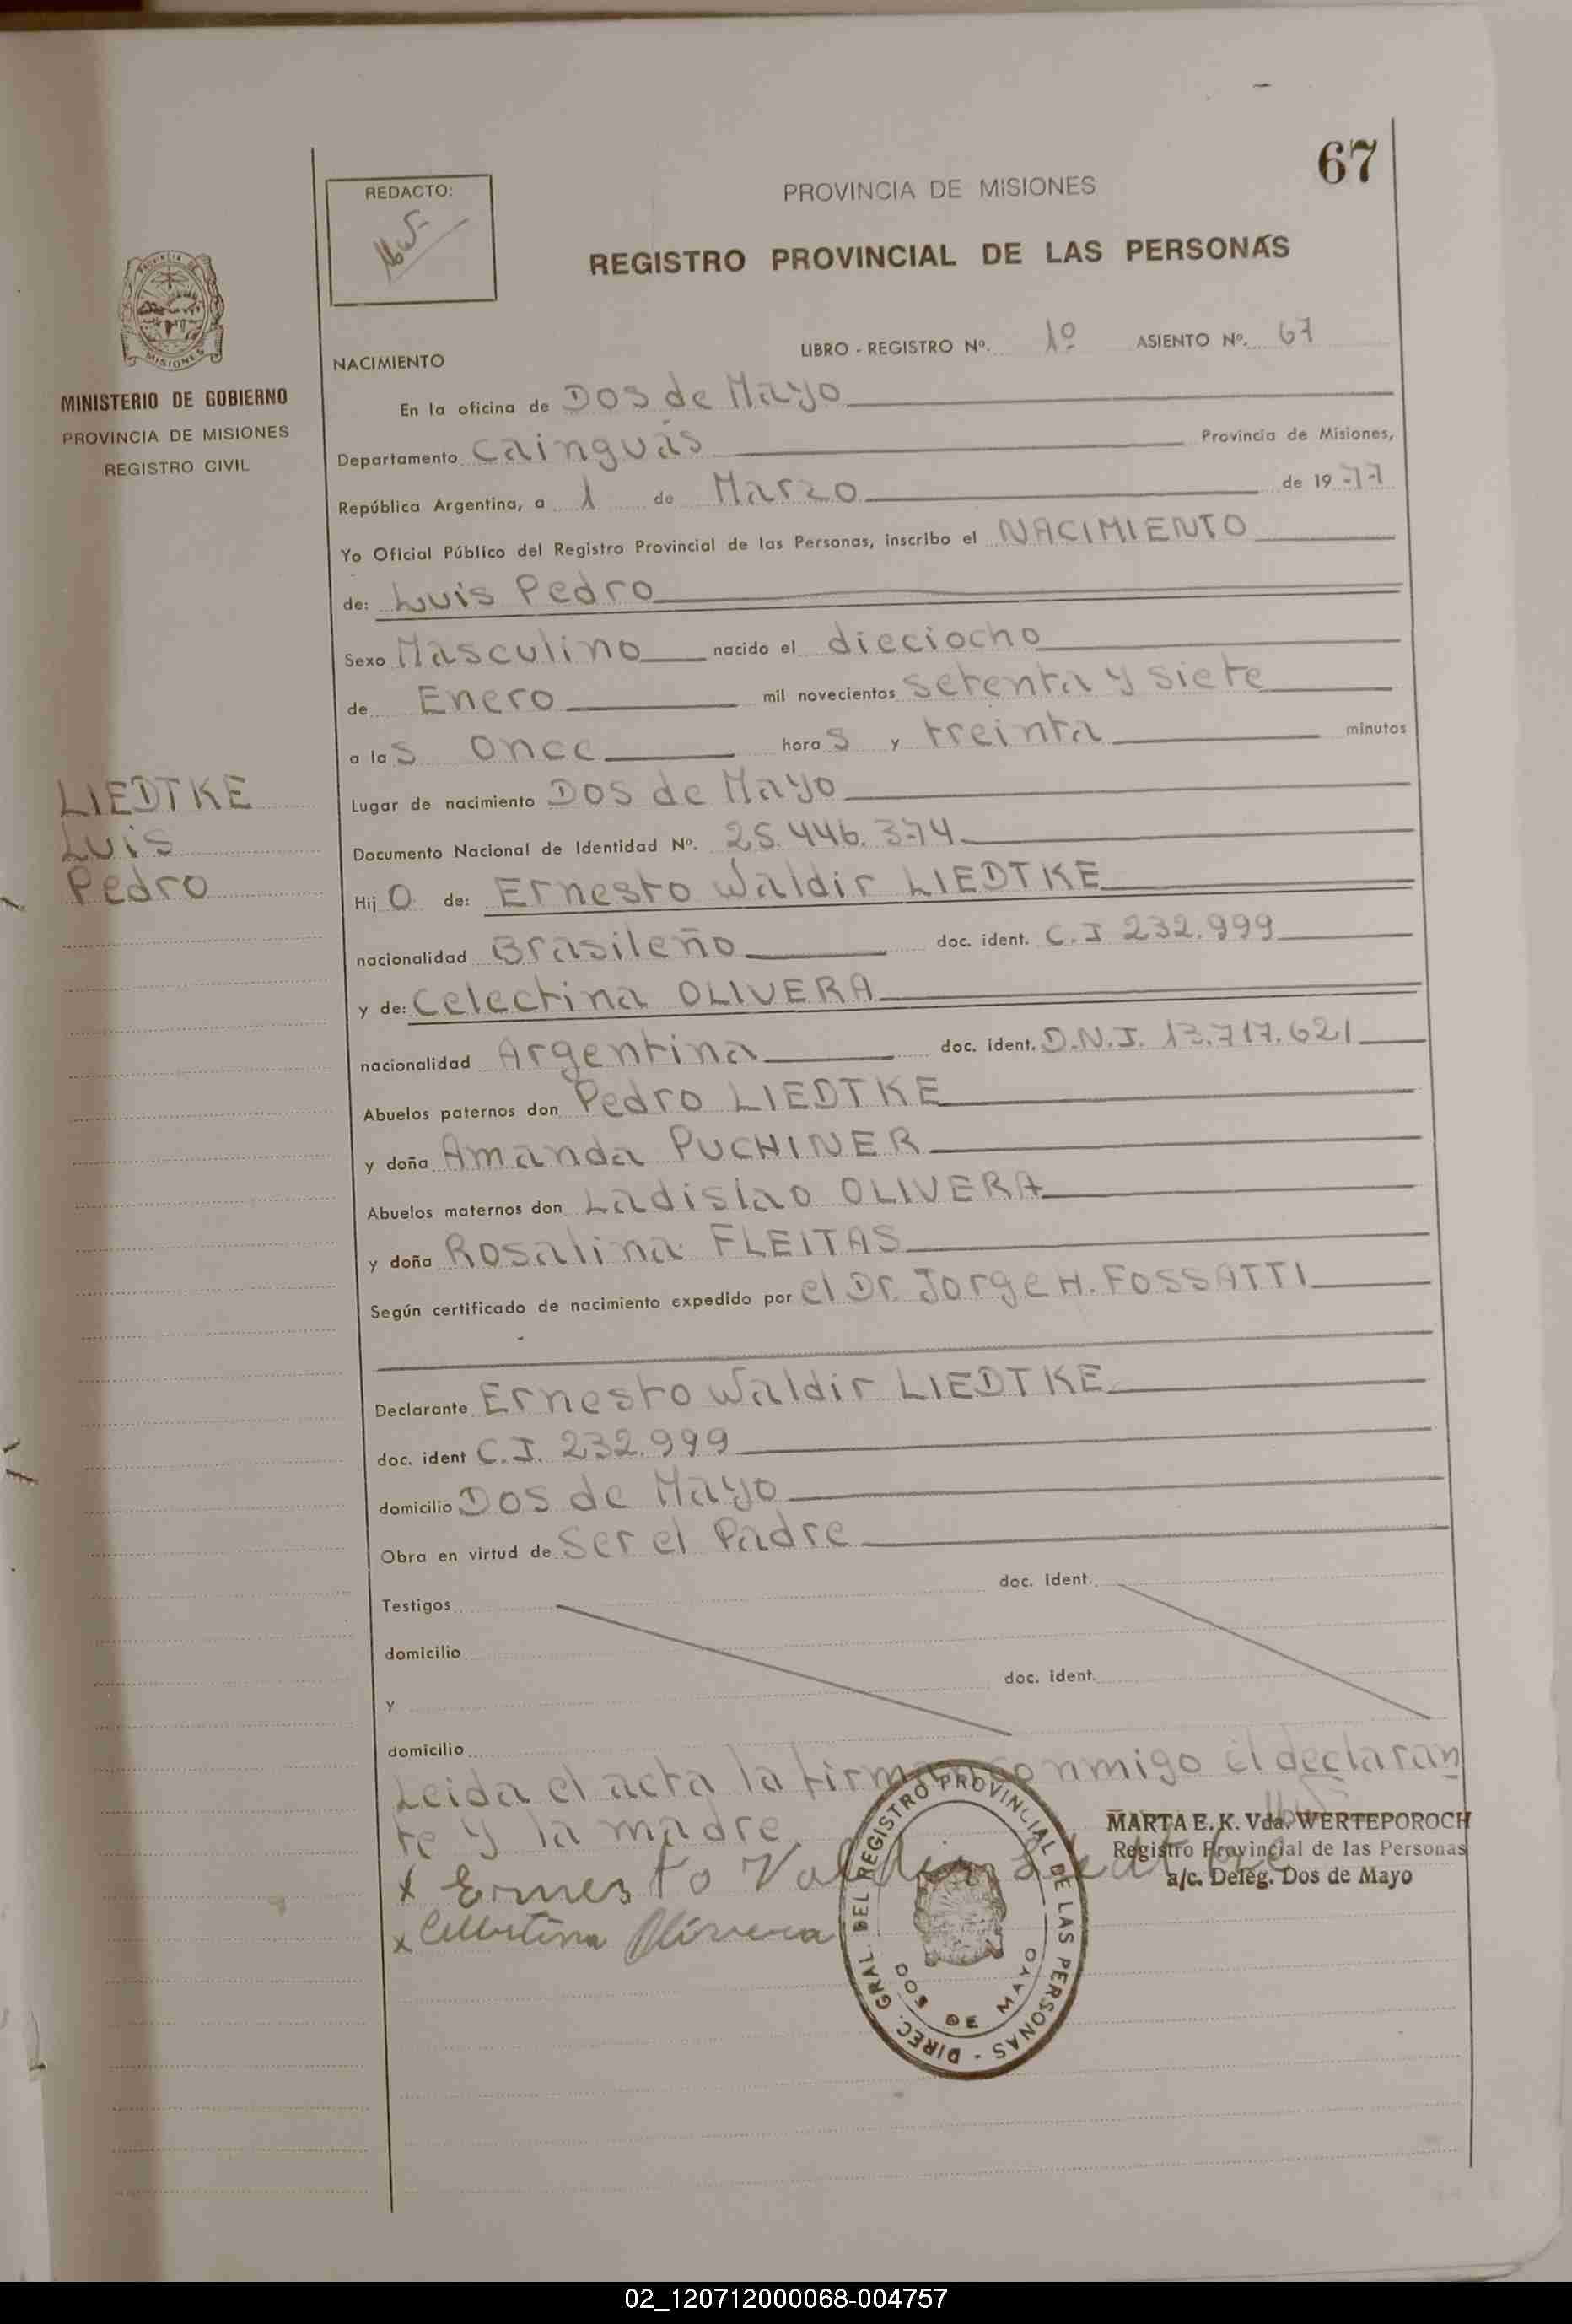 67
REDACTO:
PROVINCIA DE MISIONES
REGISTRO PROVINCIAL DE LAS PERSONAS
MINISTERIO DE GOBIERNO
PROVINCIA DE MISIONES
REGISTRO CIVIL
LIBRO - REGISTRO Nº. 1º ASIENTO Nº. 67
NACIMIENTO
En la oficina de Dos de Mayo
Departamento Cainguás Provincia de Misiones,
República Argentina, a 1 de Marzo de 1977
Yo Oficial Público del Registro Provincial de las Personas, inscribo el NACIMIENTO
de: Luis Pedro
Sexo Masculino nacido el dieciocho
de Enero mil novecientos setenta y siete
a las once horas y treinta minutos
LIEDTKE
Luis
Pedro
Lugar de nacimiento Dos de Mayo
Documento Nacional de Identidad Nº. 25.446.374
Hijo de: Ernesto Waldir LIEDTKE
nacionalidad Brasileño doc. ident. C.I 232.999
y de: Celectina OLIVERA
nacionalidad Argentina doc. ident. D.N.I. 13.717.621
Abuelos paternos don Pedro LIEDTKE
y doña Amanda PUCHINER
Abuelos maternos don Ladislao OLIVERA
y doña Rosalina FLEITAS
Según certificado de nacimiento expedido por el Dr. Jorge H. FOSSATTI
Declarante Ernesto Waldir LIEDTKE
doc. ident C.I. 232.999
domicilio Dos de Mayo
Obra en virtud de ser el Padre
Testigos doc. ident.
domicilio
y doc. ident.
domicilio
Leida el acta la firman conmigo el declaran
te y la madre
MARTA E. K. Vda. WERTEPOROCH
Registro Provincial de las Personas
a/c. Deleg. Dos de Mayo
x Ernesto Valdir Liedtke
x Celestina Olivera
DIREC. GRAL. DEL REGISTRO PROVINCIAL DE LAS PERSONAS -
DOS DE MAYO
02_120712000068-004757